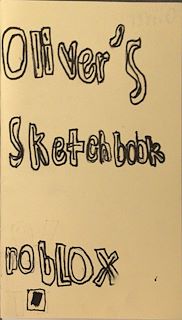 Oliver's
Sketchbook
noBLOX